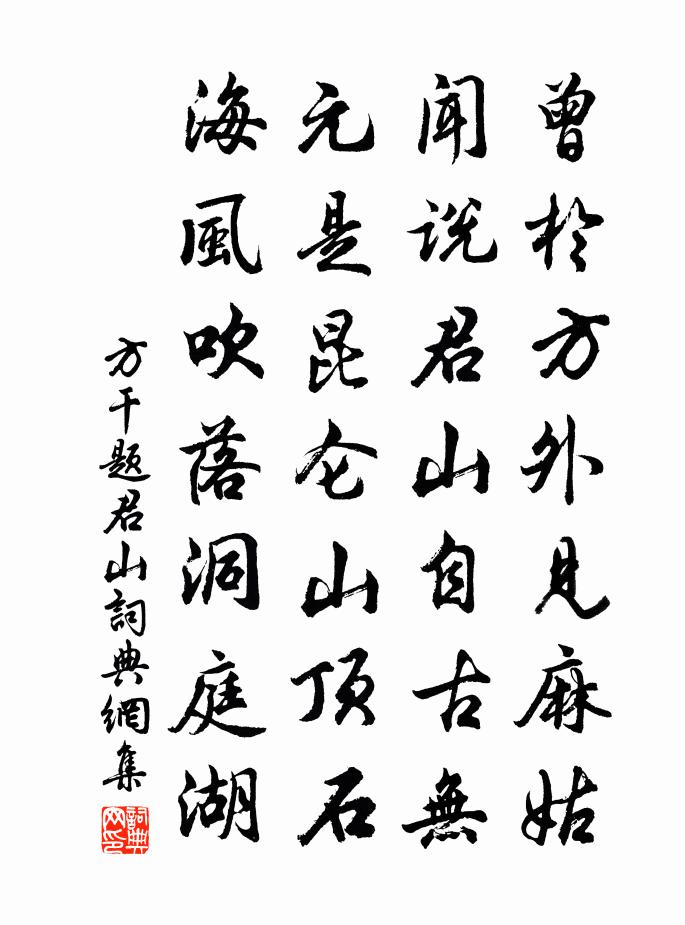 曾於方外見麻姑
聞説君山自古無
元是昆仑山顶石
海風吹落洞庭湖
方干题君山詞典網集
詞典网印